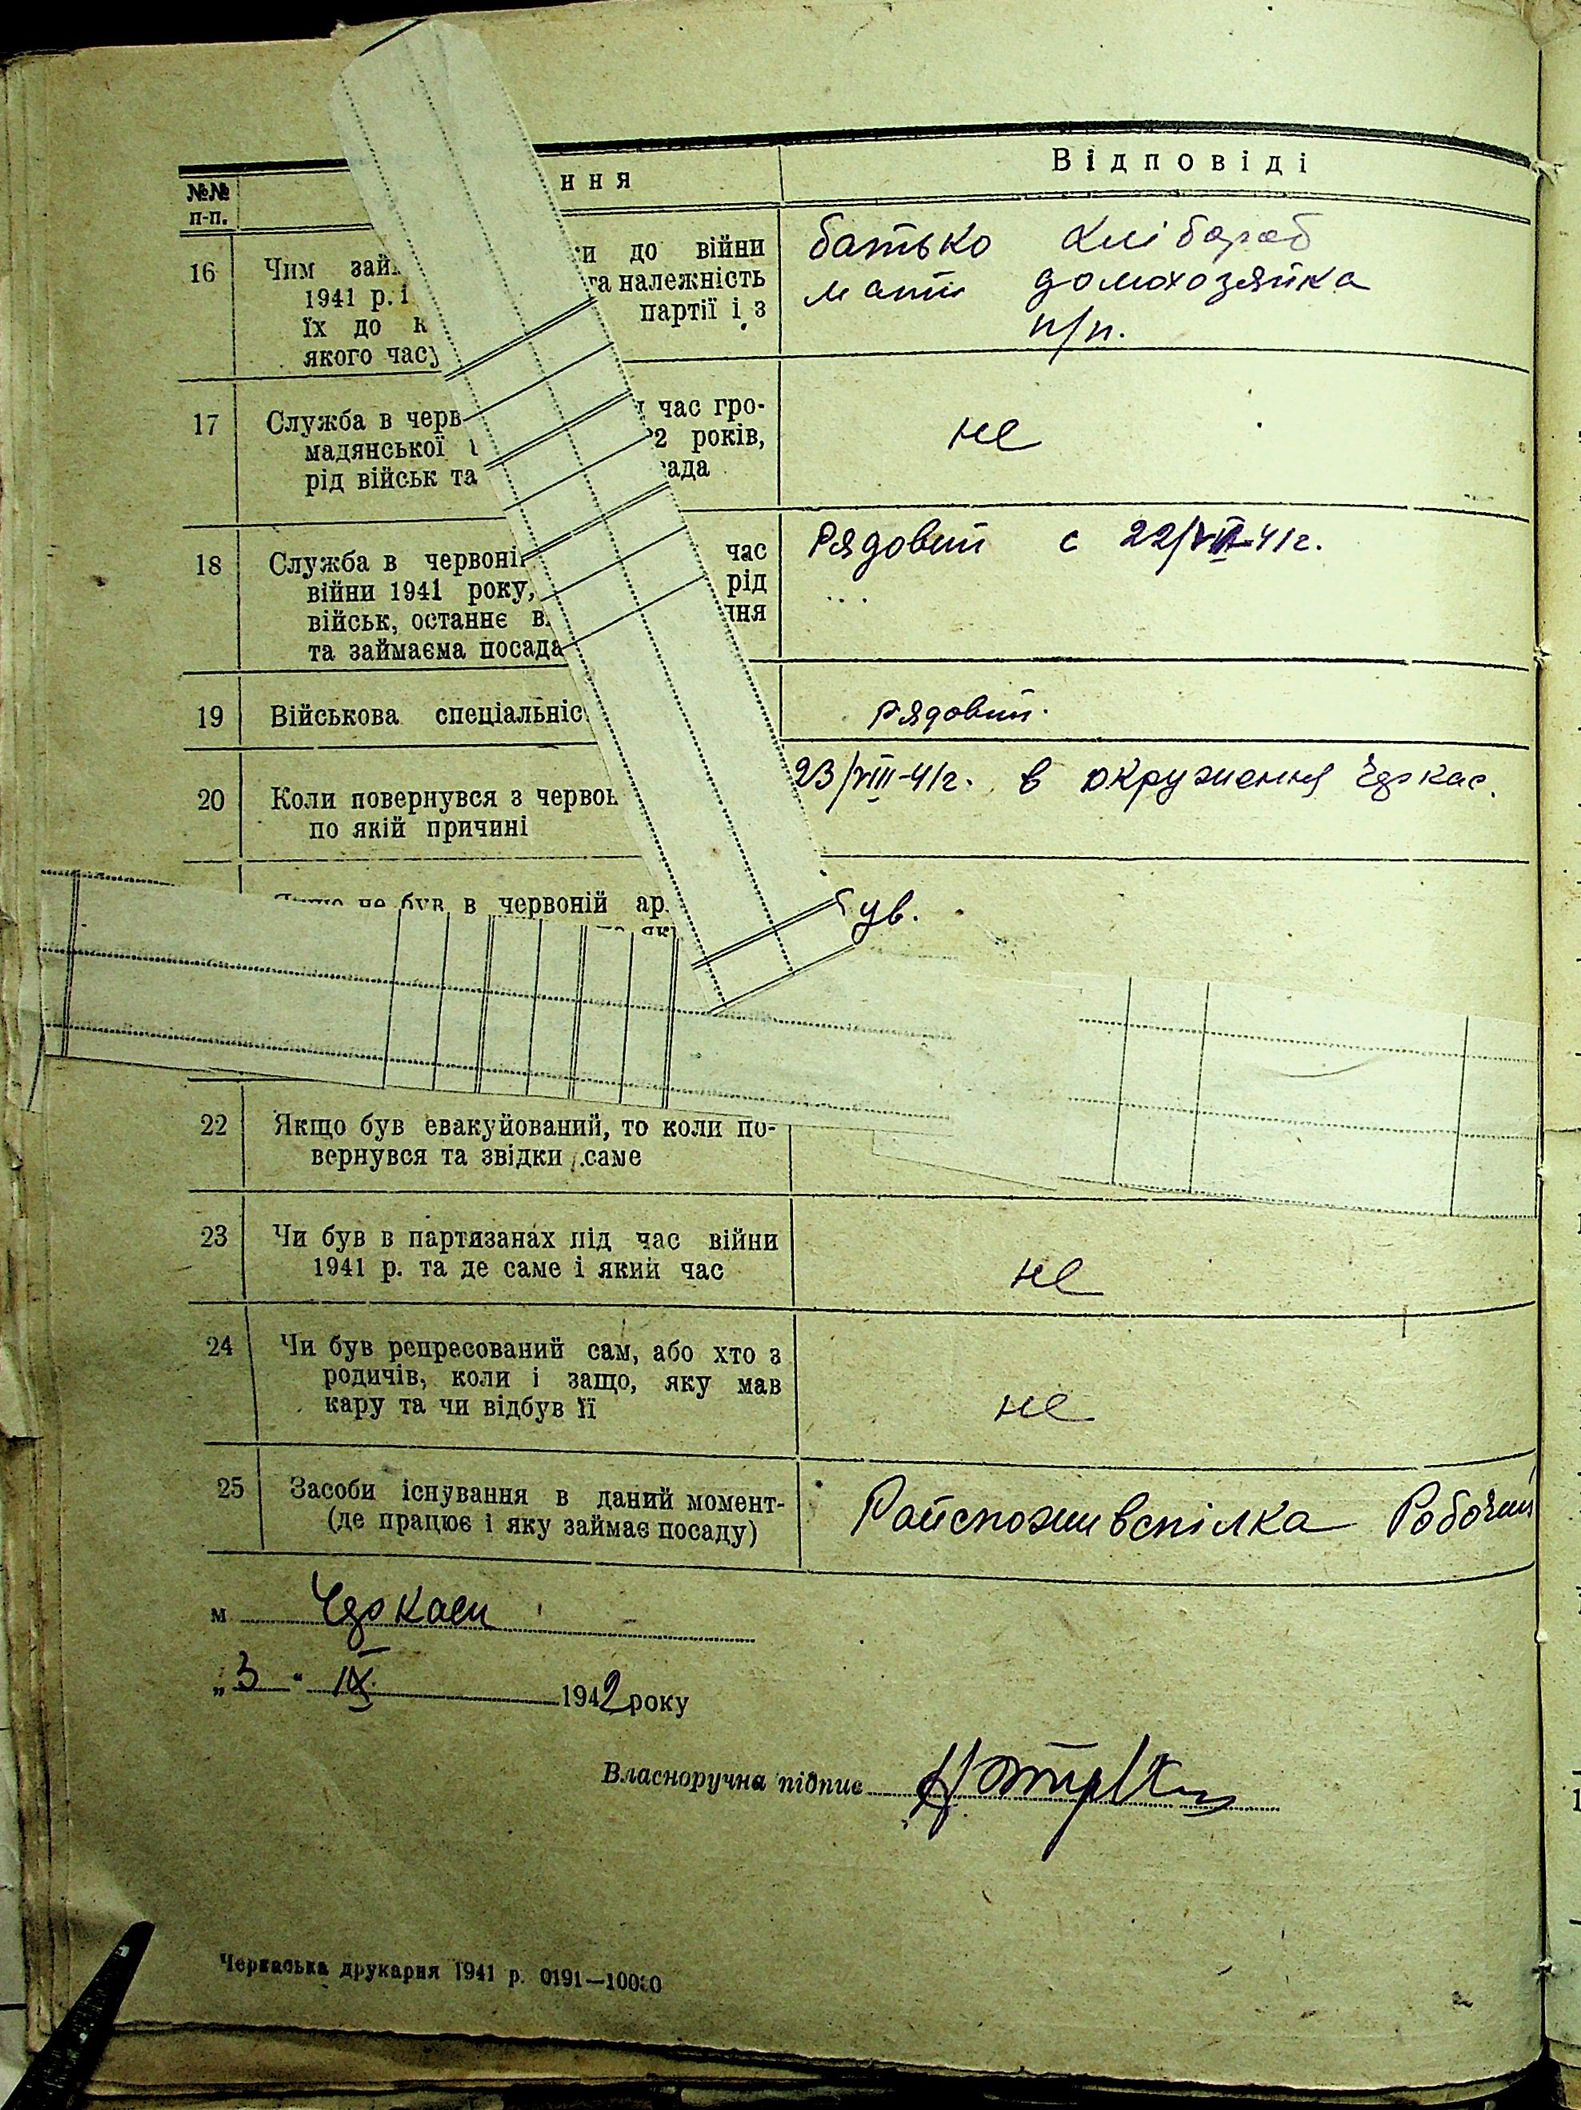 №№ п-п.
ння
Відповіді
16
Чим
ки до війни
1941 р.
та належність
їх до к
партії і з
якого часу
батько хлібороб
мати домохозяйка
п/п.
17
Служба в черв
час гро-
мадянської
22 років,
рід військ та
сада
не
18
Служба в червоній
час
війни 1941 року,
рід
військ, останнє
ння
та займаєма посада
Рядовий с 22/VII-41г.
19
Військова спеціальніс
рядовий.
20
Коли повернувся з червон
по якій причині
23/VIII-41г. в окружения Черкас.
не був в червоній ар
був.
22
Якщо був евакуйований, то коли по-
вернувся та звідки саме
23
Чи був в партизанах під час війни
1941 р. та де саме і який час
не
24
Чи був репресований сам, або хто з
родичів, коли і защо, яку мав
кару та чи відбув її
не
25
Засоби існування в даний момент-
(де працює і яку займає посаду)
Райспоживспілка Робочий
м Черкаси
„3" IX 1942 року
Власноручна підпис
Черкаська друкарня 1941 р. 0191—10000